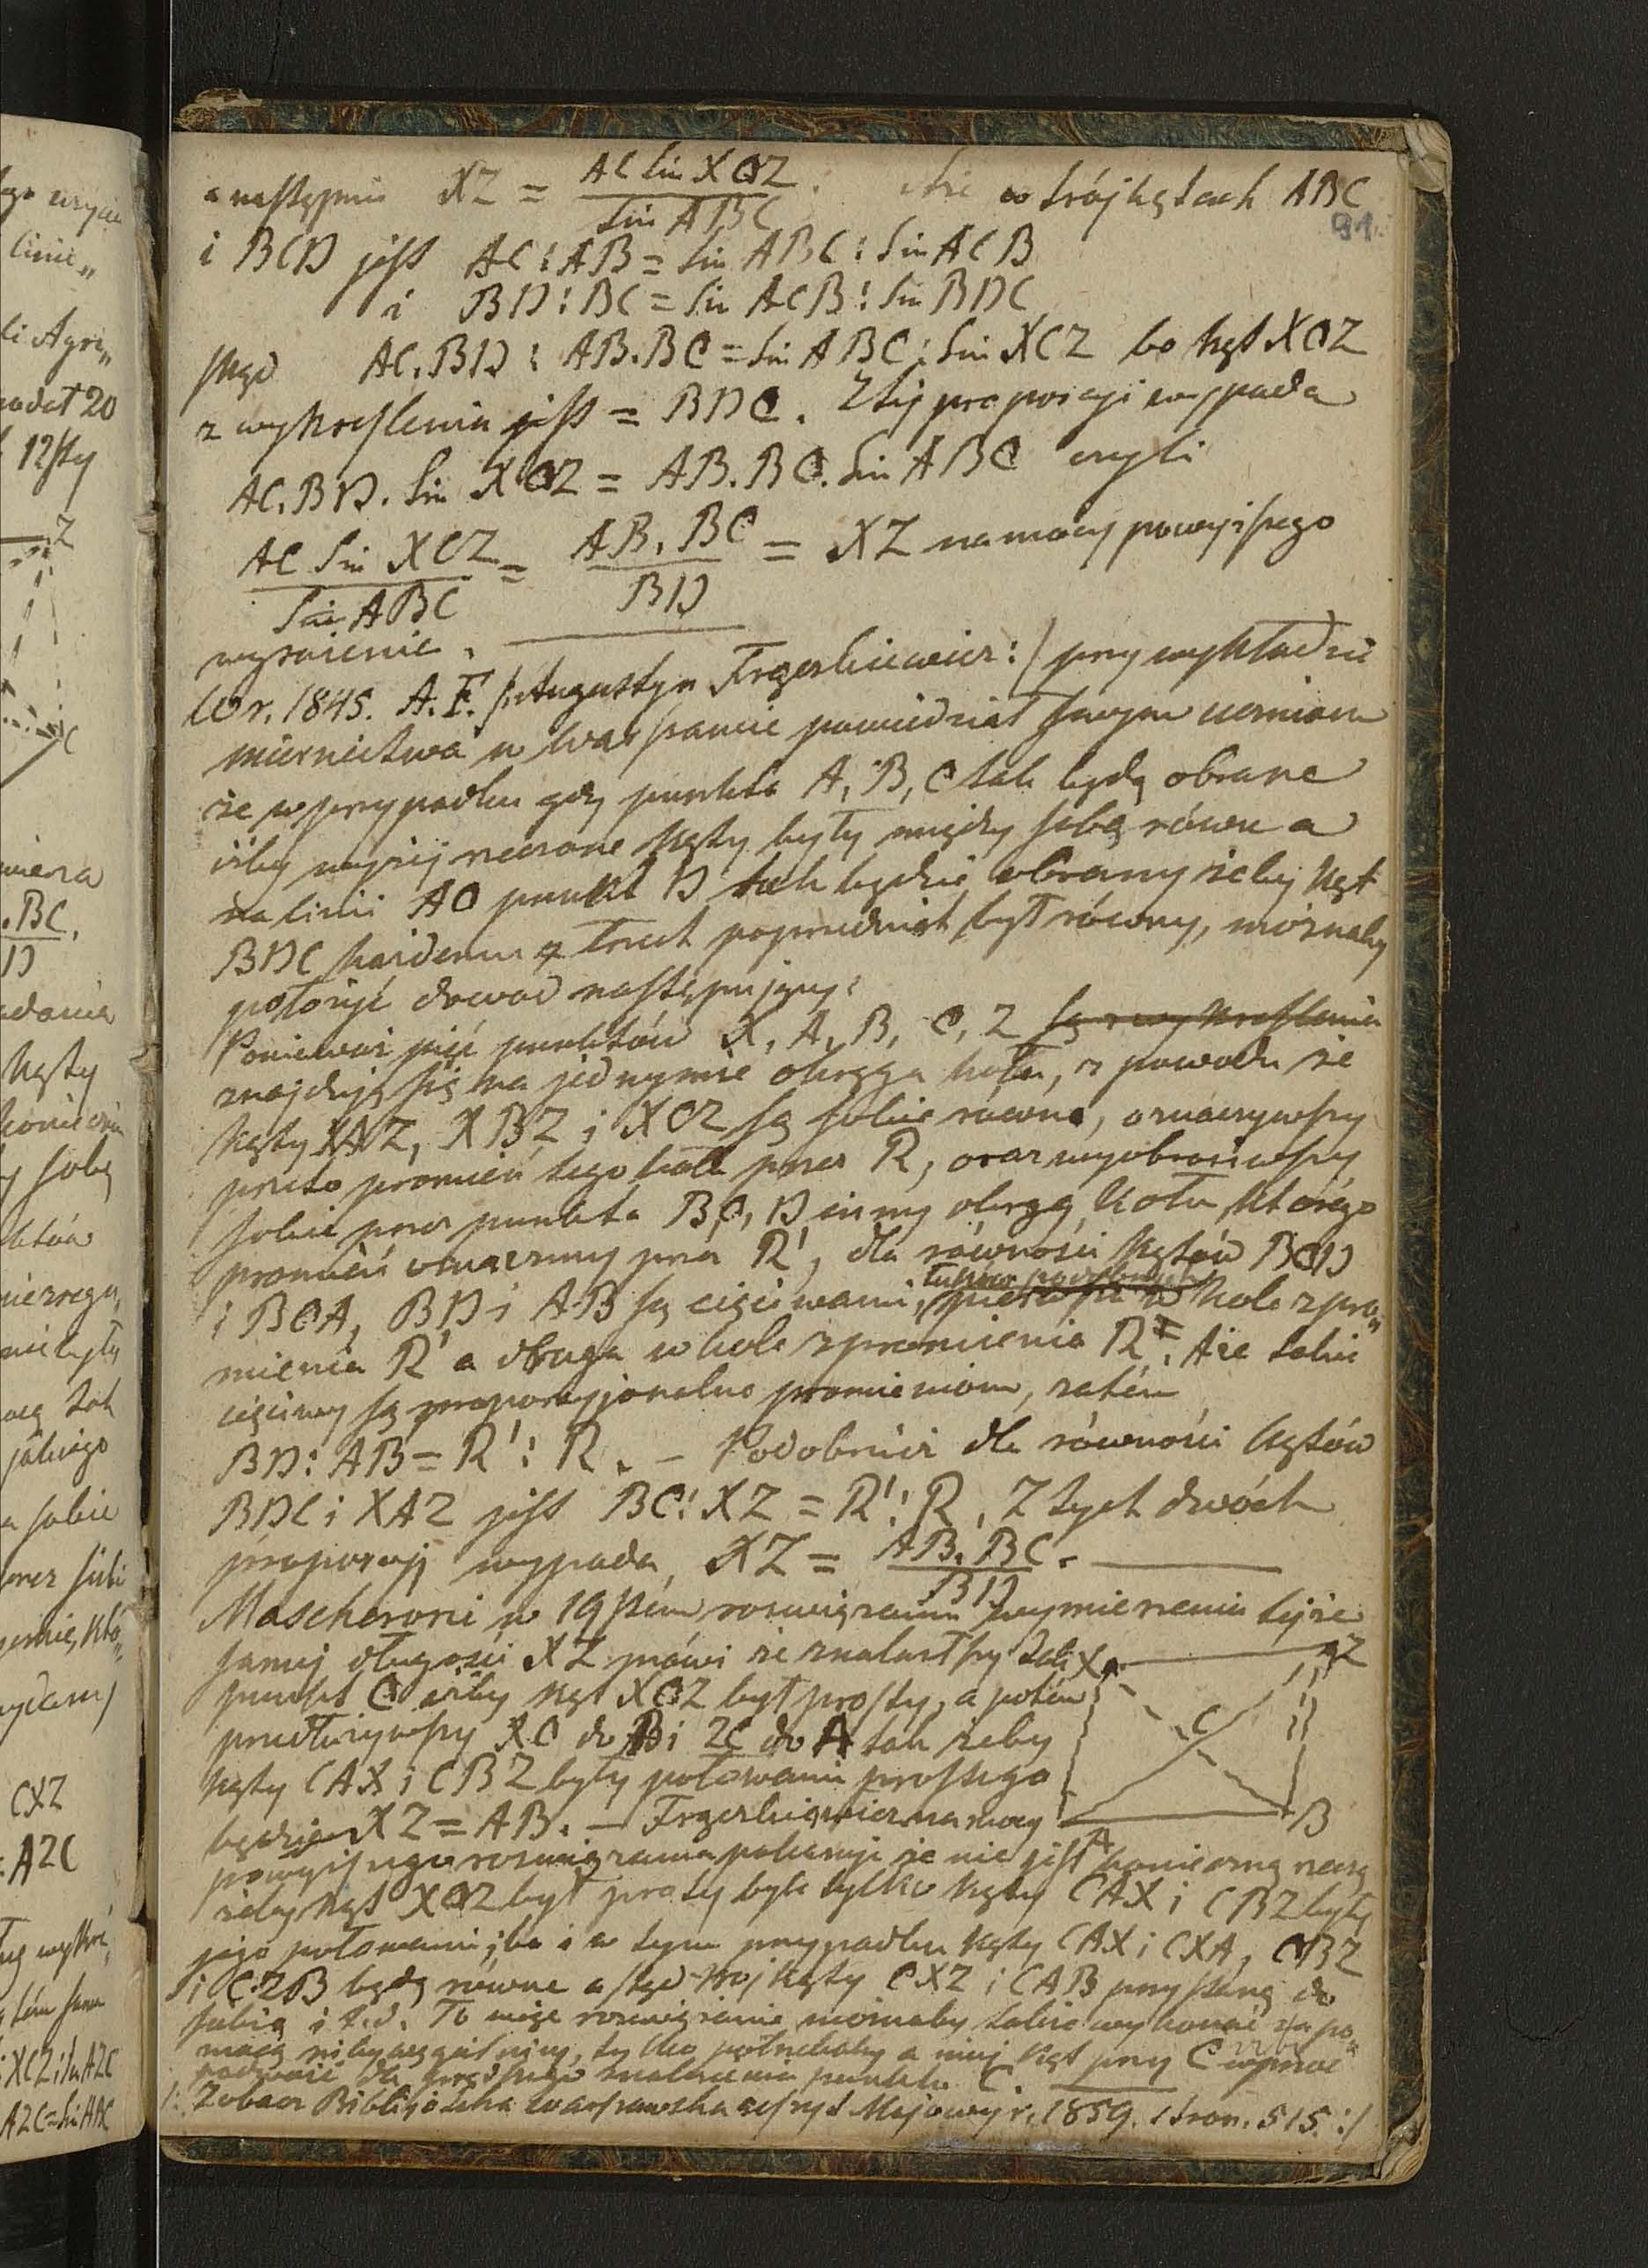 a następnie XZ = AC sin XCZ / sin ABC. Ale w trójkątach ABC
91.
i BCD jest AC : AB = sin ABC : sin ACB
i BD : BC = sin ACB : sin BDC
stąd AC. BD : AB. BC = sin ABC : sin XCZ bo kąt XCZ
z wykreślenia jest = BDC. Z tej proporcyi wypada
AC. BD. sin XCZ = AB. BC. sin ABC czyli
AC sin XCZ / sin ABC = AB. BC / BD = XZ na mocy powyższego
wyrażenia.
W r. 1845. A. F. /: Augustyn Frączkiewicz :/ przy wykładzie
miernictwa w Warszawie powiedział swym uczniom
że w przypadku gdy punkta A, B, C tak będą obrane
iżby wyżej rzeczone kąty były między sobą równe a
na linii AC punkt D tak będzie obrany żeby kąt
BDC każdemu z trzech poprzednich był równy, możnaby
położyć dowód następujący:
Ponieważ pięć punktów X, A, B, C, Z są z wykreślenia
znajdują się na jednymże okręgu koła, z powodu że
kąty XAZ, XBZ i XCZ są sobie równe, oznaczywszy
przeto promień tego koła przez R, oraz wyobraziwszy
sobie przez punkta B, C, D inny okrąg koła, którego
promień oznaczmy przez R', dla równości kątów BCD
łuków podobnych
i BCA, BD i AB są cięciwami, pierwsza w kole z pro„
mienia R' a druga w kole z promienia R. Ale takie
cięciwy są proporcyjonalne promieniom, zatém
BD : AB = R' : R. – Podobnież dla równości kątów
BDC i XAZ jest BC : XZ = R' : R. Z tych dwóch
proporcyj wypada XZ = AB. BC / BD.
Mascheroni w 19stém rozwiązaniu wymierzenia tejże
samej długości XZ mówi że znalazłszy tak
punkt C iżby kąt XCZ był prosty, a potém
przedłużywszy XC do B i ZC do A tak żeby
kąty CAX i CBZ były połowami prostego
będzie XZ = AB. – Frączkiewicz na mocy
powyższego rozwiązania pokazuje że nie jest konieczną rzeczą
żeby kąt XCZ był prosty byle tylko kąty CAX i CBZ były
jego połowami; bo i w tym przypadku kąty CAX i CXA, CBZ
i CZB będą równe a stąd trójkąty CXZ i CAB przystaną do
siebie i t. d. To więc rozwiązanie możnaby sobie wykonać za po„
mocą węgielnicy, tylko potrzebaby a niej kąt przy C
dla prędszego znalezienia punktu C.
/: Zobacz Biblijoteka warszawska zeszyt Majowy r. 1859. stron. 515. :/
X
Z
C
A
B